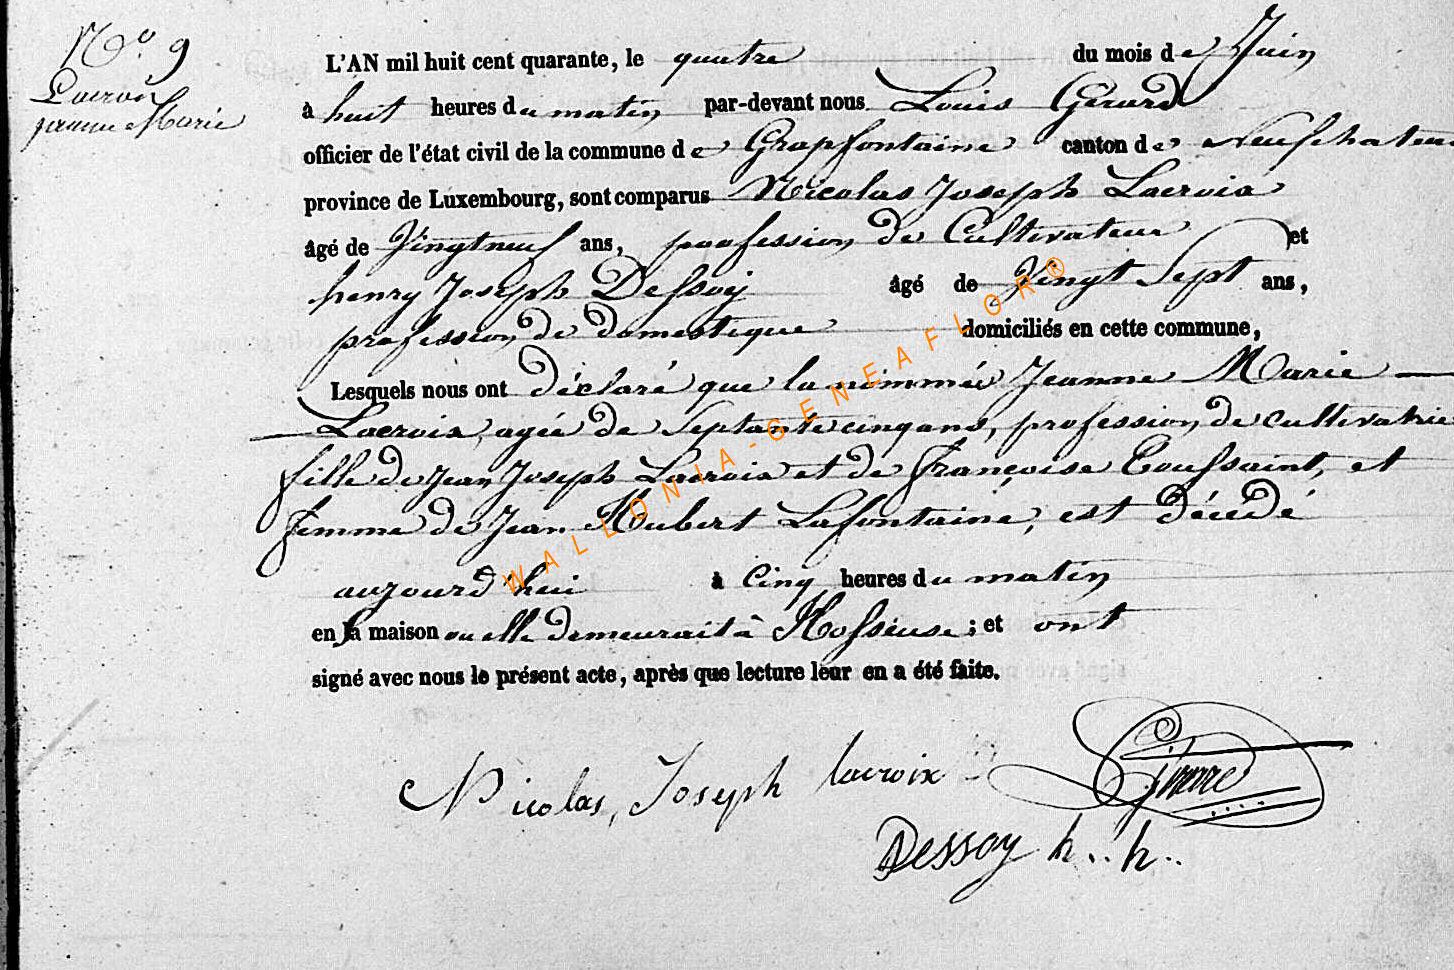 N.º 9
Lacroix
jeanne Marie
L'AN mil huit cent quarante, le quatre du mois de Juin
à huit heures du matin par-devant nous Louis Gérard
officier de l'état civil de la commune de Grapfontaine canton de Neufchateau
province de Luxembourg, sont comparus Nicolas Joseph Lacroix
âgé de Vingtneuf ans, profession de Cultivateur et
henry Joseph Dessoÿ âgé de Vingt Sept ans,
profession de domestique domiciliés en cette commune,
Lesquels nous ont déclaré que la nommée Jeanne Marie
Lacroix, agée de Septante cinq ans, profession de cultivatrice
fille de Jean Joseph Lacroix et de françoise Toussaint, et
femme de Jean Hubert Lafontaine, est décédé
aujourd'hui à Cinq heures du matin
en la maison ou elle demeurait à Hosseuse ; et ont
signé avec nous le présent acte, après que lecture leur en a été faite.
Nicolas, Joseph lacroix
Gérard
Dessoy h.. h..
WALLONIA-GENEAFLOR®